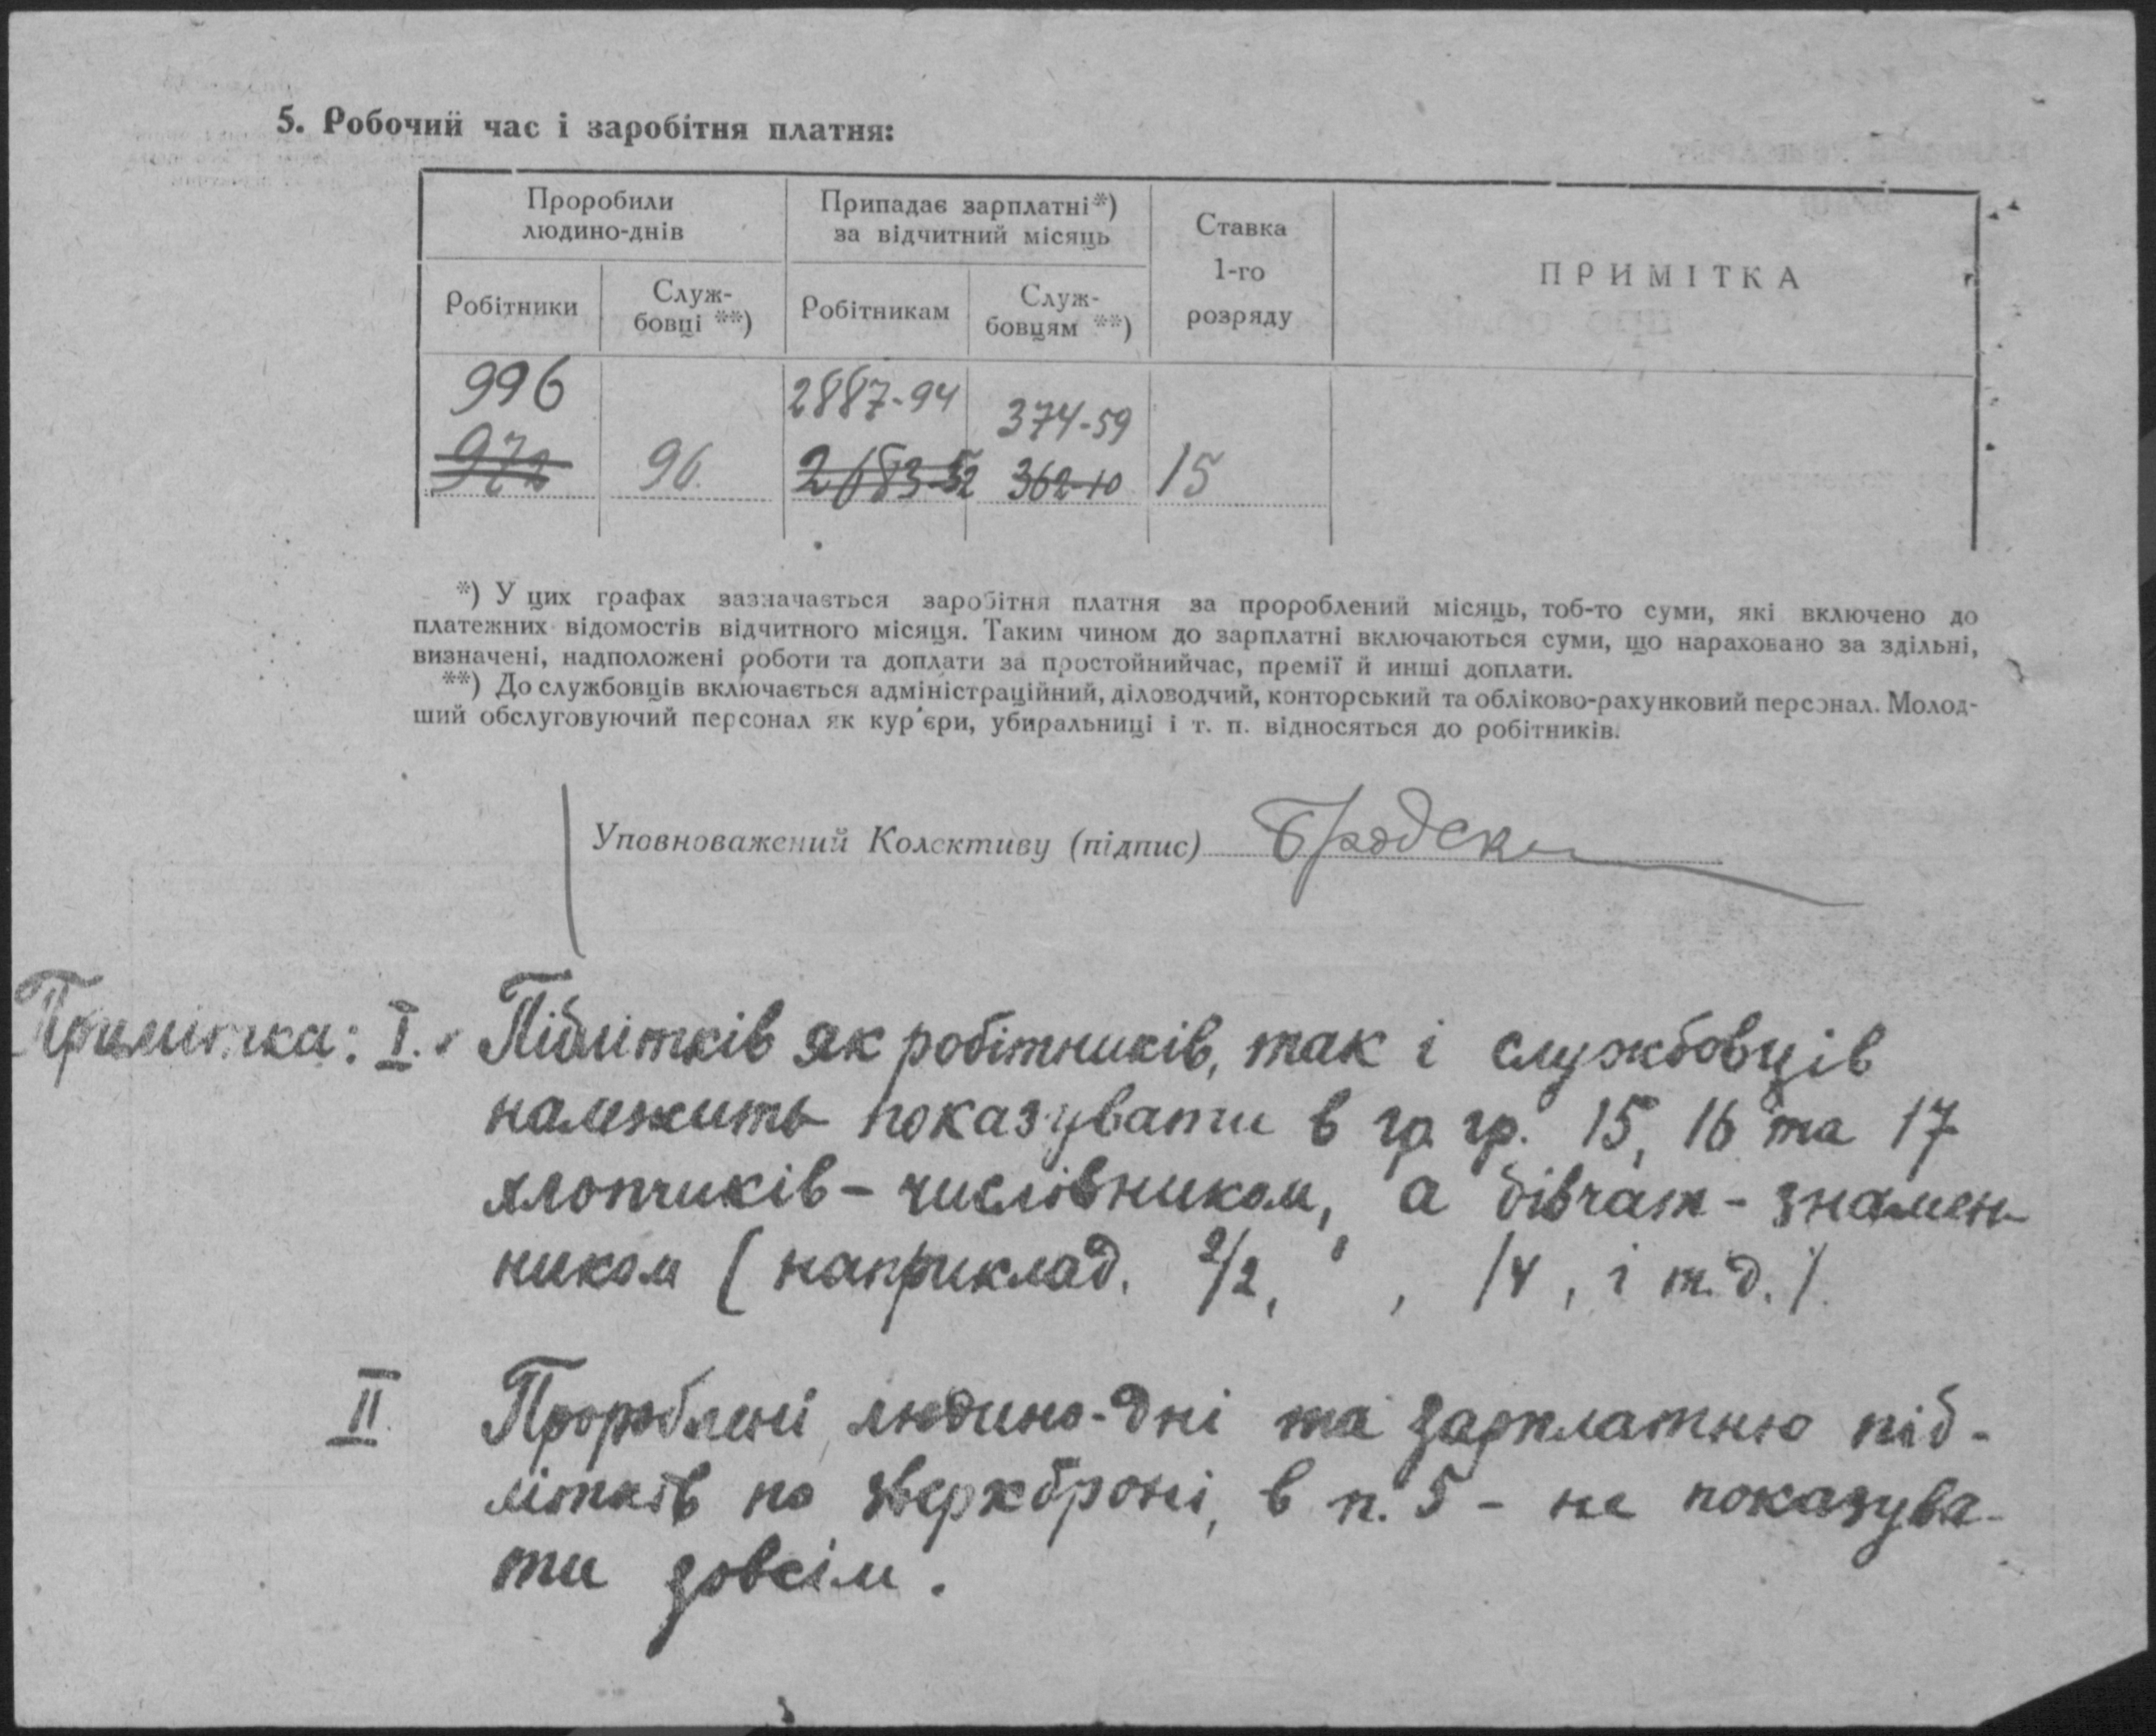 5. Робочий час і заробітня платня:
Проробили людино-днів
Припадає зарплатні*) за відчитний місяць
Ставка 1-го розряду
ПРИМІТКА
Робітники
Служ-бовці **)
Робітникам
Служ-бовцям **)
996 2887-94 374-59
972 96. 2683-52 362-10 15
*) У цих графах зазначається заробітня платня за пророблений місяць, тоб-то суми, які включено до
платежних відомостів відчитного місяця. Таким чином до зарплатні включаються суми, що нараховано за здільні,
визначені, надположені роботи та доплати за простойнийчас, премії й инші доплати.
**) До службовців включається адміністраційний, діловодчий, конторський та обліково-рахунковий персонал. Молод-
ший обслуговуючий персонал як кур'єри, убиральниці і т. п. відносяться до робітників.
Уповноважений Колективу (підпис) Бродски
Примітка: I. Підлітків як робітників, так і службовців
належить показувати в гр. гр. 15, 16 та 17
хлопчиків – числівником, а дівчат – знамен-
ником (наприклад. 2/2, , /4, і т.д.).
II Пророблені людино-дні та зарплатню під-
літків по зверхброні, в п. 5 – не показува-
ти зовсім.